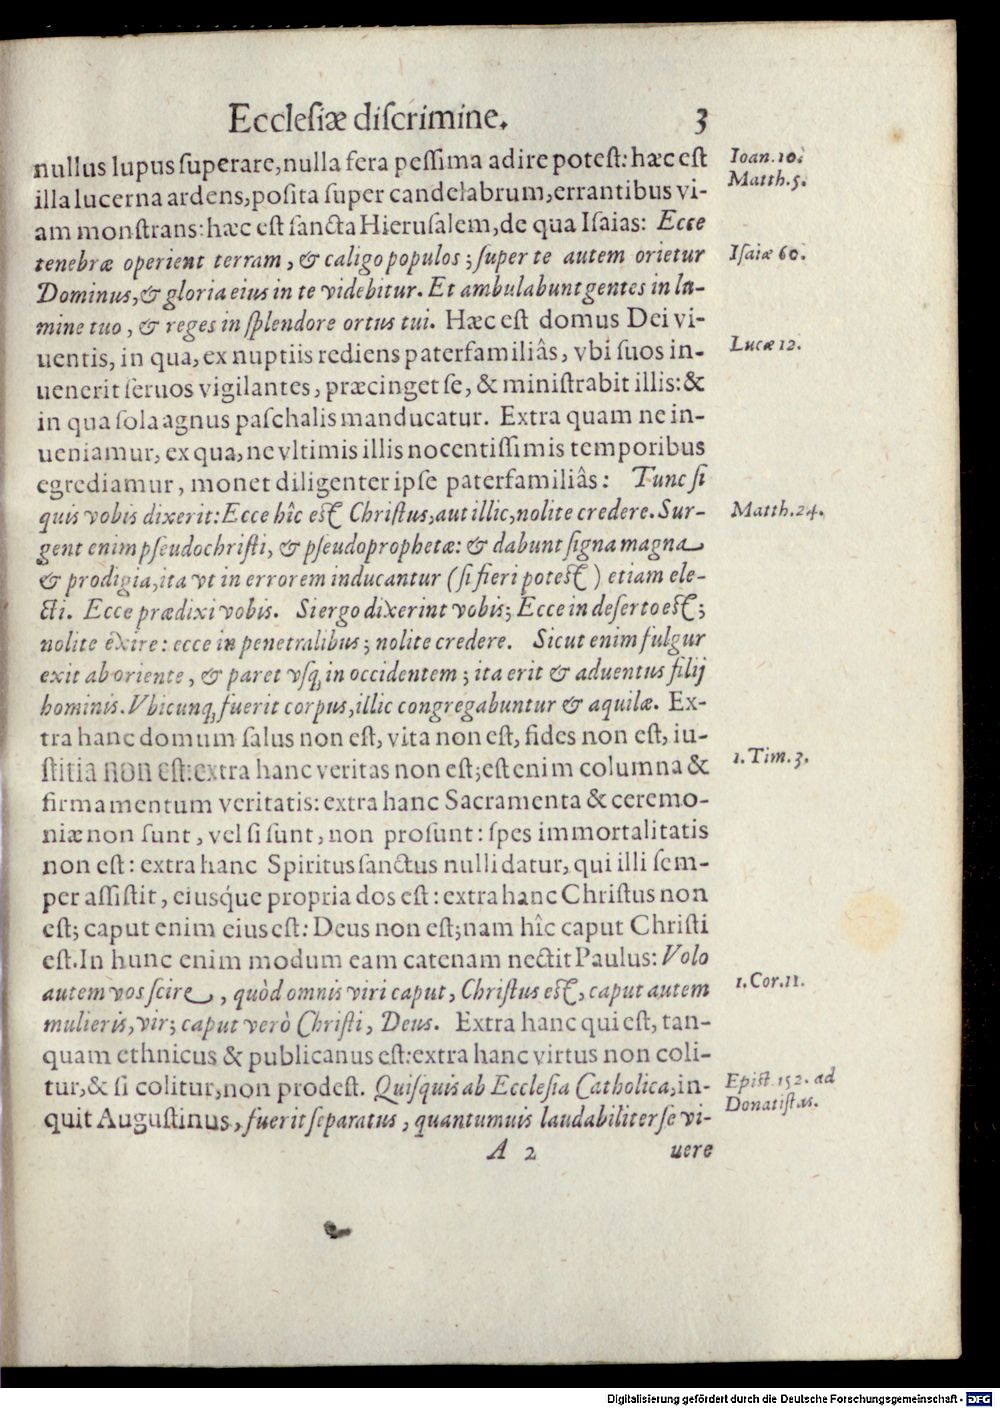 Ecclesiæ discrimine. 3
nullus lupus superare, nulla fera pessima adire potest: hæc est
Ioan. 10.
illa lucerna ardens, posita super candelabrum, errantibus vi-
Matth. 5.
am monstrans: hæc est sancta Hierusalem, de qua Isaias: Ecce
tenebræ operient terram, & caligo populos; super te autem orietur
Isaiæ 60.
Dominus, & gloria eius in te videbitur. Et ambulabunt gentes in lu-
mine tuo, & reges in splendore ortus tui. Hæc est domus Dei vi-
uentis, in qua, ex nuptiis rediens paterfamiliâs, vbi suos in-
Lucæ 12.
uenerit seruos vigilantes, præcinget se, & ministrabit illis: &
in qua sola agnus paschalis manducatur. Extra quam ne in-
ueniamur, ex qua, ne vltimis illis nocentissimis temporibus
egrediamur, monet diligenter ipse paterfamiliâs: Tunc si
quis vobis dixerit: Ecce hîc est Christus, aut illic, nolite credere. Sur-
Matth. 24.
gent enim pseudochristi, & pseudoprophetæ: & dabunt signa magna
& prodigia, ita vt in errorem inducantur (si fieri potest) etiam ele-
cti. Ecce prædixi vobis. Si ergo dixerint vobis; Ecce in deserto est;
nolite exire: ecce in penetralibus; nolite credere. Sicut enim fulgur
exit ab oriente, & paret vsq; in occidentem; ita erit & aduentus filij
hominis. Vbicunq; fuerit corpus, illic congregabuntur & aquilæ. Ex-
tra hanc domum salus non est, vita non est, fides non est, iu-
stitia non est: extra hanc veritas non est; est enim columna &
1. Tim. 3.
firmamentum veritatis: extra hanc Sacramenta & ceremo-
niæ non sunt, vel si sunt, non prosunt: spes immortalitatis
non est: extra hanc Spiritus sanctus nulli datur, qui illi sem-
per assistit, eiusq́ue propria dos est: extra hanc Christus non
est; caput enim eius est: Deus non est; nam hîc caput Christi
est. In hunc enim modum eam catenam nectit Paulus: Volo
autem vos scire, quòd omnis viri caput, Christus est, caput autem
1. Cor. 11.
mulieris, vir; caput verò Christi, Deus. Extra hanc qui est, tan-
quam ethnicus & publicanus est: extra hanc virtus non coli-
tur, & si colitur, non prodest. Quisquis ab Ecclesia Catholica, in-
Epist. 152. ad
quit Augustinus, fuerit separatus, quantumuis laudabiliter se vi-
Donatistas.
A 2 uere
Digitalisierung gefördert durch die Deutsche Forschungsgemeinschaft - DFG